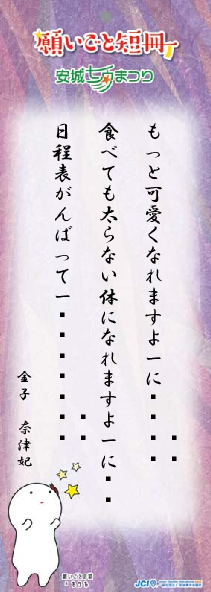 願いごと短冊
安城七夕まつり
もっと可愛くなれますよーに・・・・・・
食べても太らない体になれますよーに・・・・
日程表がんばってー・・・・・・・・
金子 奈津妃
JCI